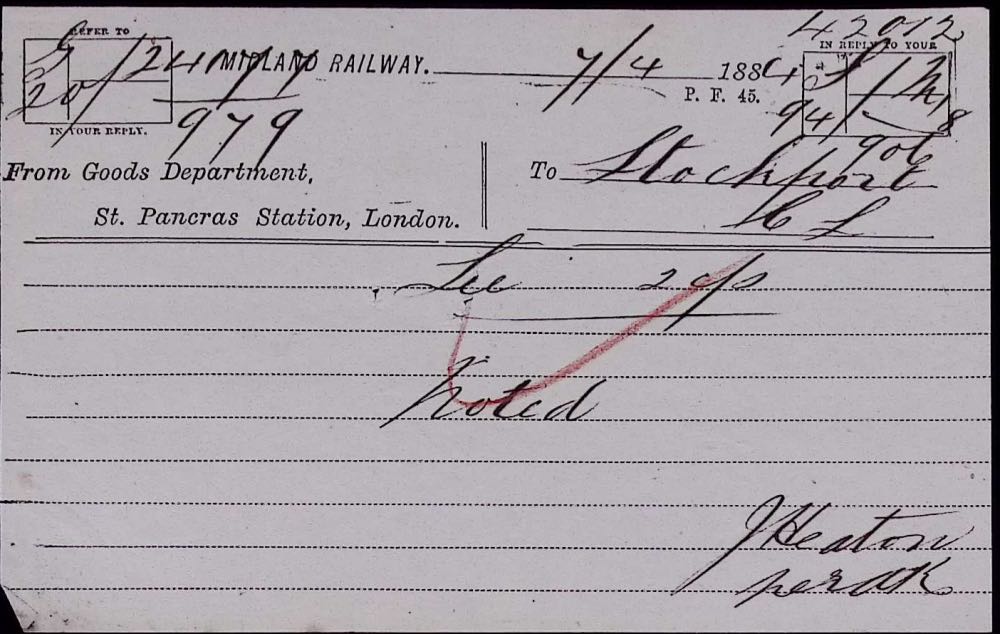 REFER TO
IN YOUR REPLY.
979
MIDLAND RAILWAY. 7/4 1884
P. F. 45.
42012
IN REPLY TO YOUR
94/
906
From Goods Department,
St. Pancras Station, London.
To Stockport
C L
Lee 2 c/s
Noted
J Heaton
per AK